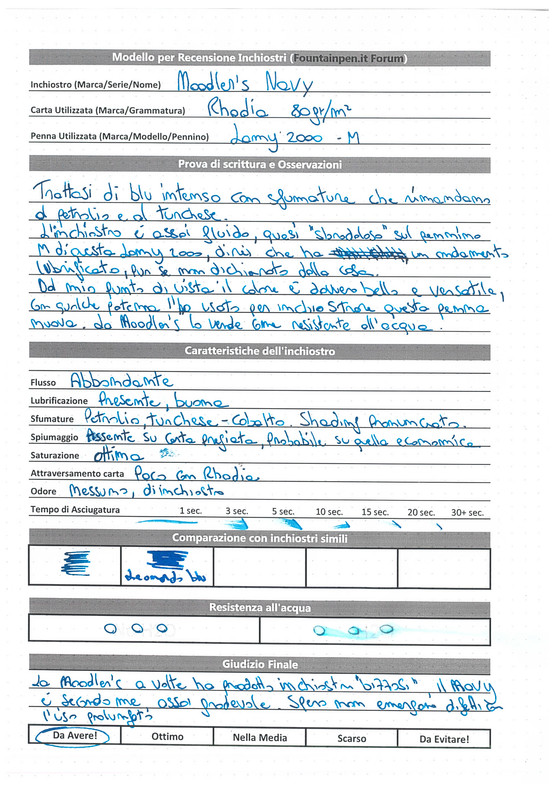 Modello per Recensione Inchiostri (Fountainpen.it Forum)
Inchiostro (Marca/Serie/Nome) Noodler's Navy
Carta Utilizzata (Marca/Grammatura) Rhodia 80gr/m²
Penna Utilizzata (Marca/Modello/Pennino) Lamy 2000 - M
Prova di scrittura e Osservazioni
Trattasi di blu intenso con sfumature che rimandano
al petrolio e al turchese.
L'inchiostro è assai fluido, quasi "sbrodoloso" sul pennino
M di questa Lamy 2000, direi che ha un andamento
lubrificato, pur se non dichiarato dalla casa.
Dal mio punto di vista il colore è davvero bello e versatile,
con qualche patema l'ho usato per inchiostrare questa penna
nuova. La Noodler's lo vende come resistente all'acqua.
Caratteristiche dell'inchiostro
Flusso Abbondante
Lubrificazione Presente, buona
Sfumature Petrolio, turchese - cobalto. Shading pronunciato.
Spiumaggio Assente su carta pregiata, probabile su quella economica
Saturazione Ottima
Attraversamento carta Poco con Rhodia
Odore Nessuno, di inchiostro
Tempo di Asciugatura 1 sec. 3 sec. 5 sec. 10 sec. 15 sec. 20 sec. 30+ sec.
Comparazione con inchiostri simili
Leonardo blu
Resistenza all'acqua
Giudizio Finale
La Noodler's a volte ha prodotto inchiostri "bizzosi" il Navy
è secondo me assai gradevole. Spero non emergano difetti con
l'uso prolungato
Da Avere! Ottimo Nella Media Scarso Da Evitare!